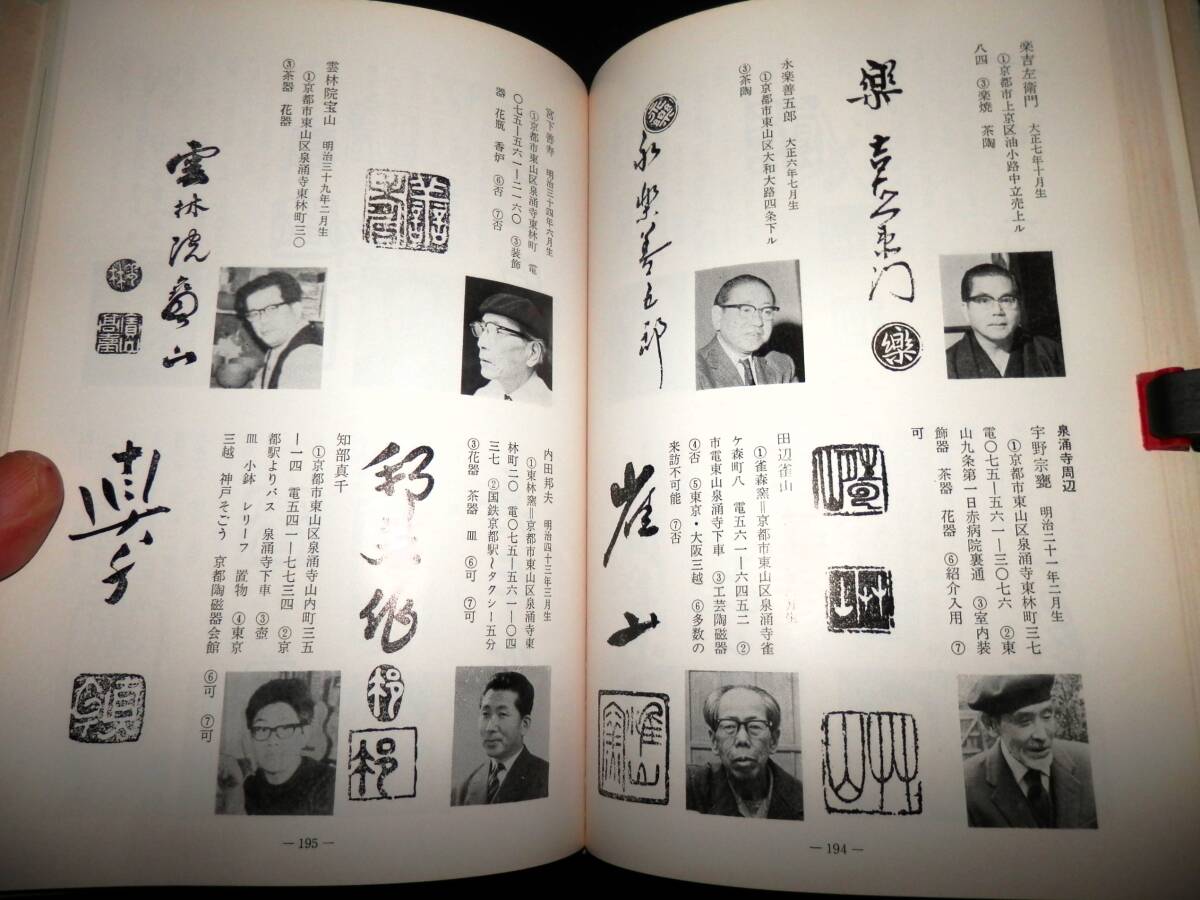 楽吉左衛門　大正七年十月生
①京都市上京区油小路中立売上ル
八四　③楽焼　茶陶
楽 吉左衛門
樂
永楽善五郎　大正六年七月生
①京都市東山区大和大路四条下ル
③茶陶
永楽善五郎
泉涌寺周辺
宇野宗甕　明治二十一年二月生
①京都市東山区泉涌寺東林町三七
電〇七五―五六一―三〇七六　②東
山九条第一日赤病院裏通　③室内装
飾器　茶器　花器　⑥紹介入用　⑦
可
田辺雀山
月生
①雀森窯＝京都市東山区泉涌寺雀
ケ森町八　電五六一―六四五二　②
市電東山泉涌寺下車　③工芸陶磁器
④否　⑤東京・大阪三越　⑥多数の
来訪不可能　⑦否
雀山
― 194 ―
宮下善寿　明治三十四年六月生
①京都市東山区泉涌寺東林町　電
〇七五―五六一―二一六〇　③装飾
器　花瓶　香炉　⑥否　⑦否
善寿
雲林院宝山　明治三十九年二月生
①京都市東山区泉涌寺東林町三〇
③茶器　花器
雲林院寶山
内田邦夫　明治四十三年三月生
①東林窯＝京都市東山区泉涌寺東
林町二〇　電〇七五―五六一―〇四
三七　②国鉄京都駅～タクシー五分
③花器　茶器　皿　⑥可　⑦可
邦夫作
知部真千
①京都市東山区泉涌寺山内町三五
―一四　電五四一―七七三四　②京
都駅よりバス　泉涌寺下車　③壺
皿　小鉢　レリーフ　置物　④東京
三越　神戸そごう　京都陶磁器会館
⑥可　⑦可
真千
― 195 ―